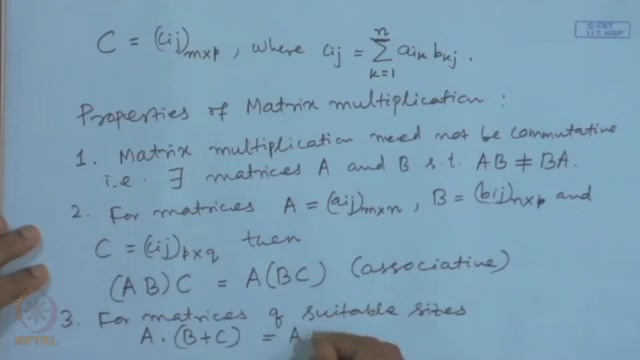 © CET
I.I.T. KGP
C = (cij)m×p , where cij = ∑_{k=1}^{n} aik bkj .
Properties of Matrix multiplication :
1. Matrix multiplication need not be commutative
i.e. ∃ matrices A and B s.t. AB ≠ BA.
2. For matrices A = (aij)m×n , B = (bij)n×p and
C = (cij)p×q then
(AB)C = A(BC) (associative)
3. For matrices of suitable sizes
A . (B+C) = A
NPTEL